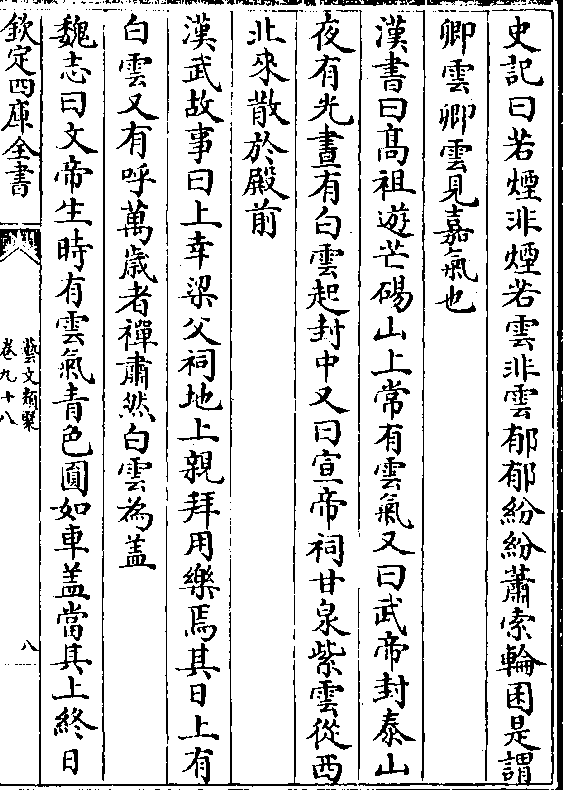 史記曰若煙非煙若雲非雲郁郁紛紛蕭索輪囷是謂
卿雲卿雲見嘉氣也
漢書曰髙祖遊芒碭山上常有雲氣又曰武帝封泰山
夜有光晝有白雲起封中又曰宣帝祠甘泉紫雲從西
北來散於殿前
漢武故事曰上幸梁父祠地上親拜用樂焉其日上有
白雲又有呼萬歲者禪肅然白雲為盖
魏志曰文帝生時有雲氣青色圓如車盖當其上終日
欽定四庫全書
藝文類聚
卷九十八
八